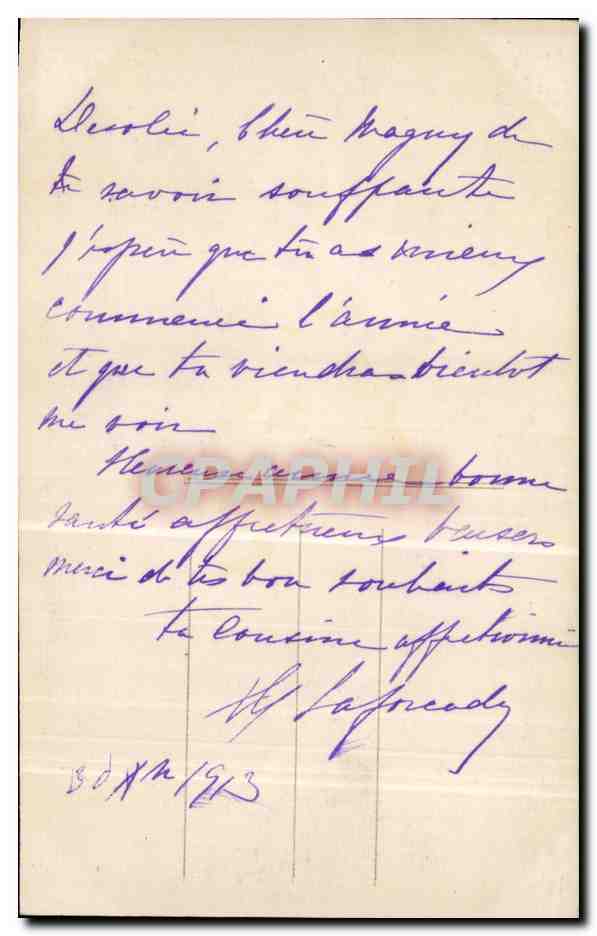 Desolée, Chère Maguy de
te savoir souffrante
j'espère que tu as mieux
commencé l'année
et que tu viendras bientot
me voir
Heureuse année bonne
santé affectueux baisers
merci de tes bon souhaits
ta Cousine affectionnée
Laforcade
3 d Xbr 1913
CPAPHIL